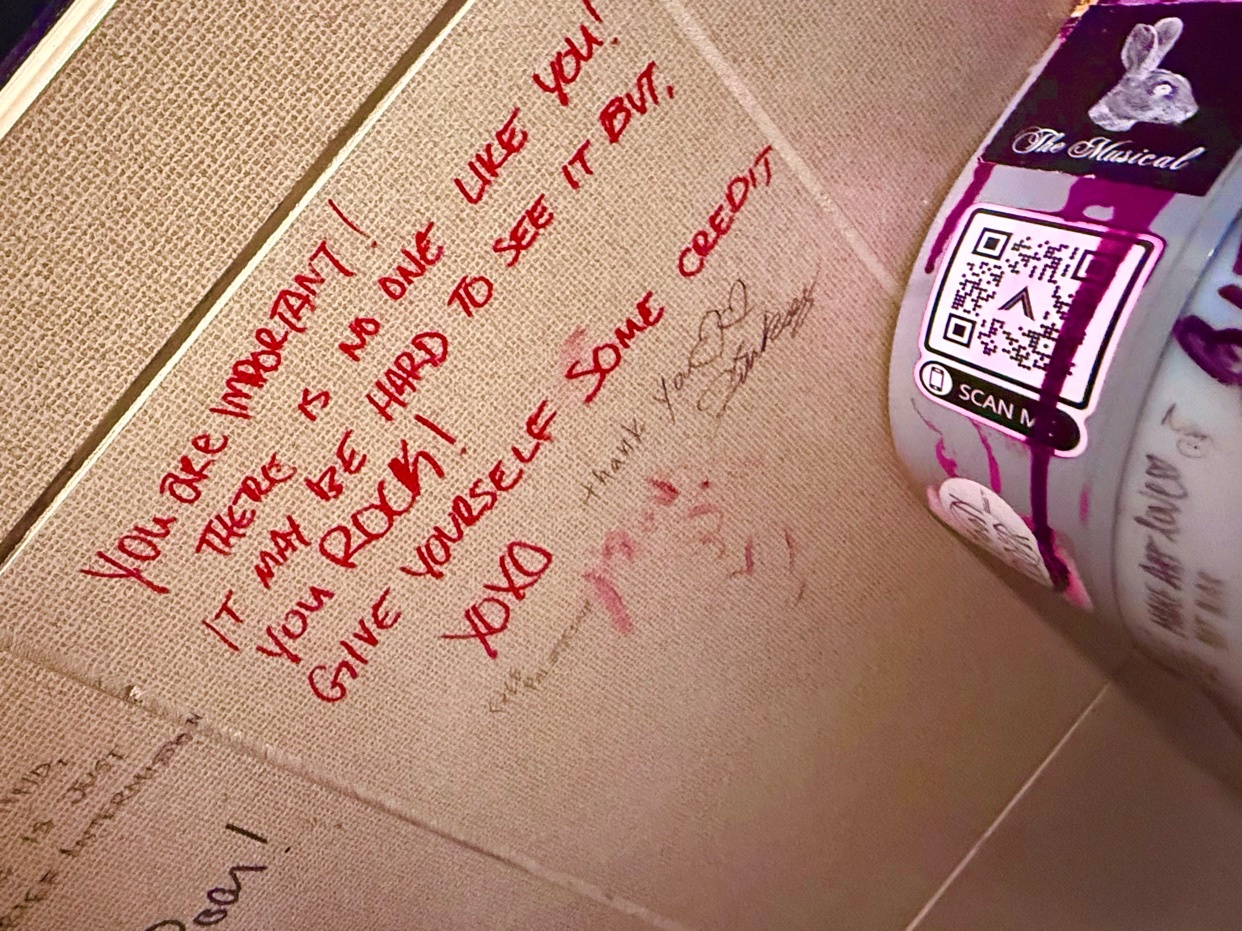 YOU ARE IMPORTANT!
THERE IS NO ONE LIKE YOU!
IT MAY BE HARD TO SEE IT BUT,
YOU ROCK!
GIVE YOURSELF SOME CREDIT
XOXO
thank you
The Musical
SCAN ME
MAKE ART
LOVED
IS JUST